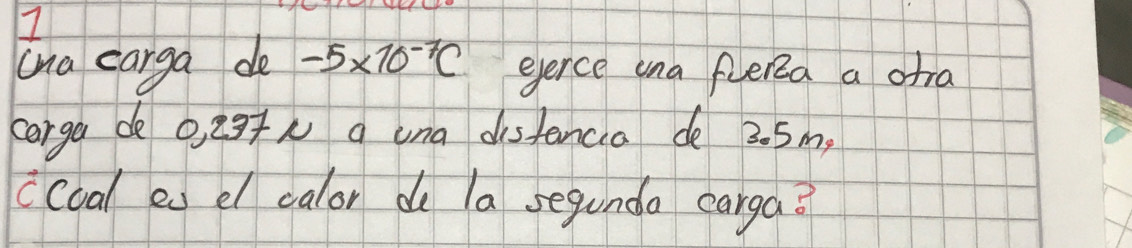 1
Una carga de -5x10⁻⁷C ejerce una fuerza a otra
carga de 0,237 N a una distancia de 3.5m,
¿Coal es el calor de la segunda carga?